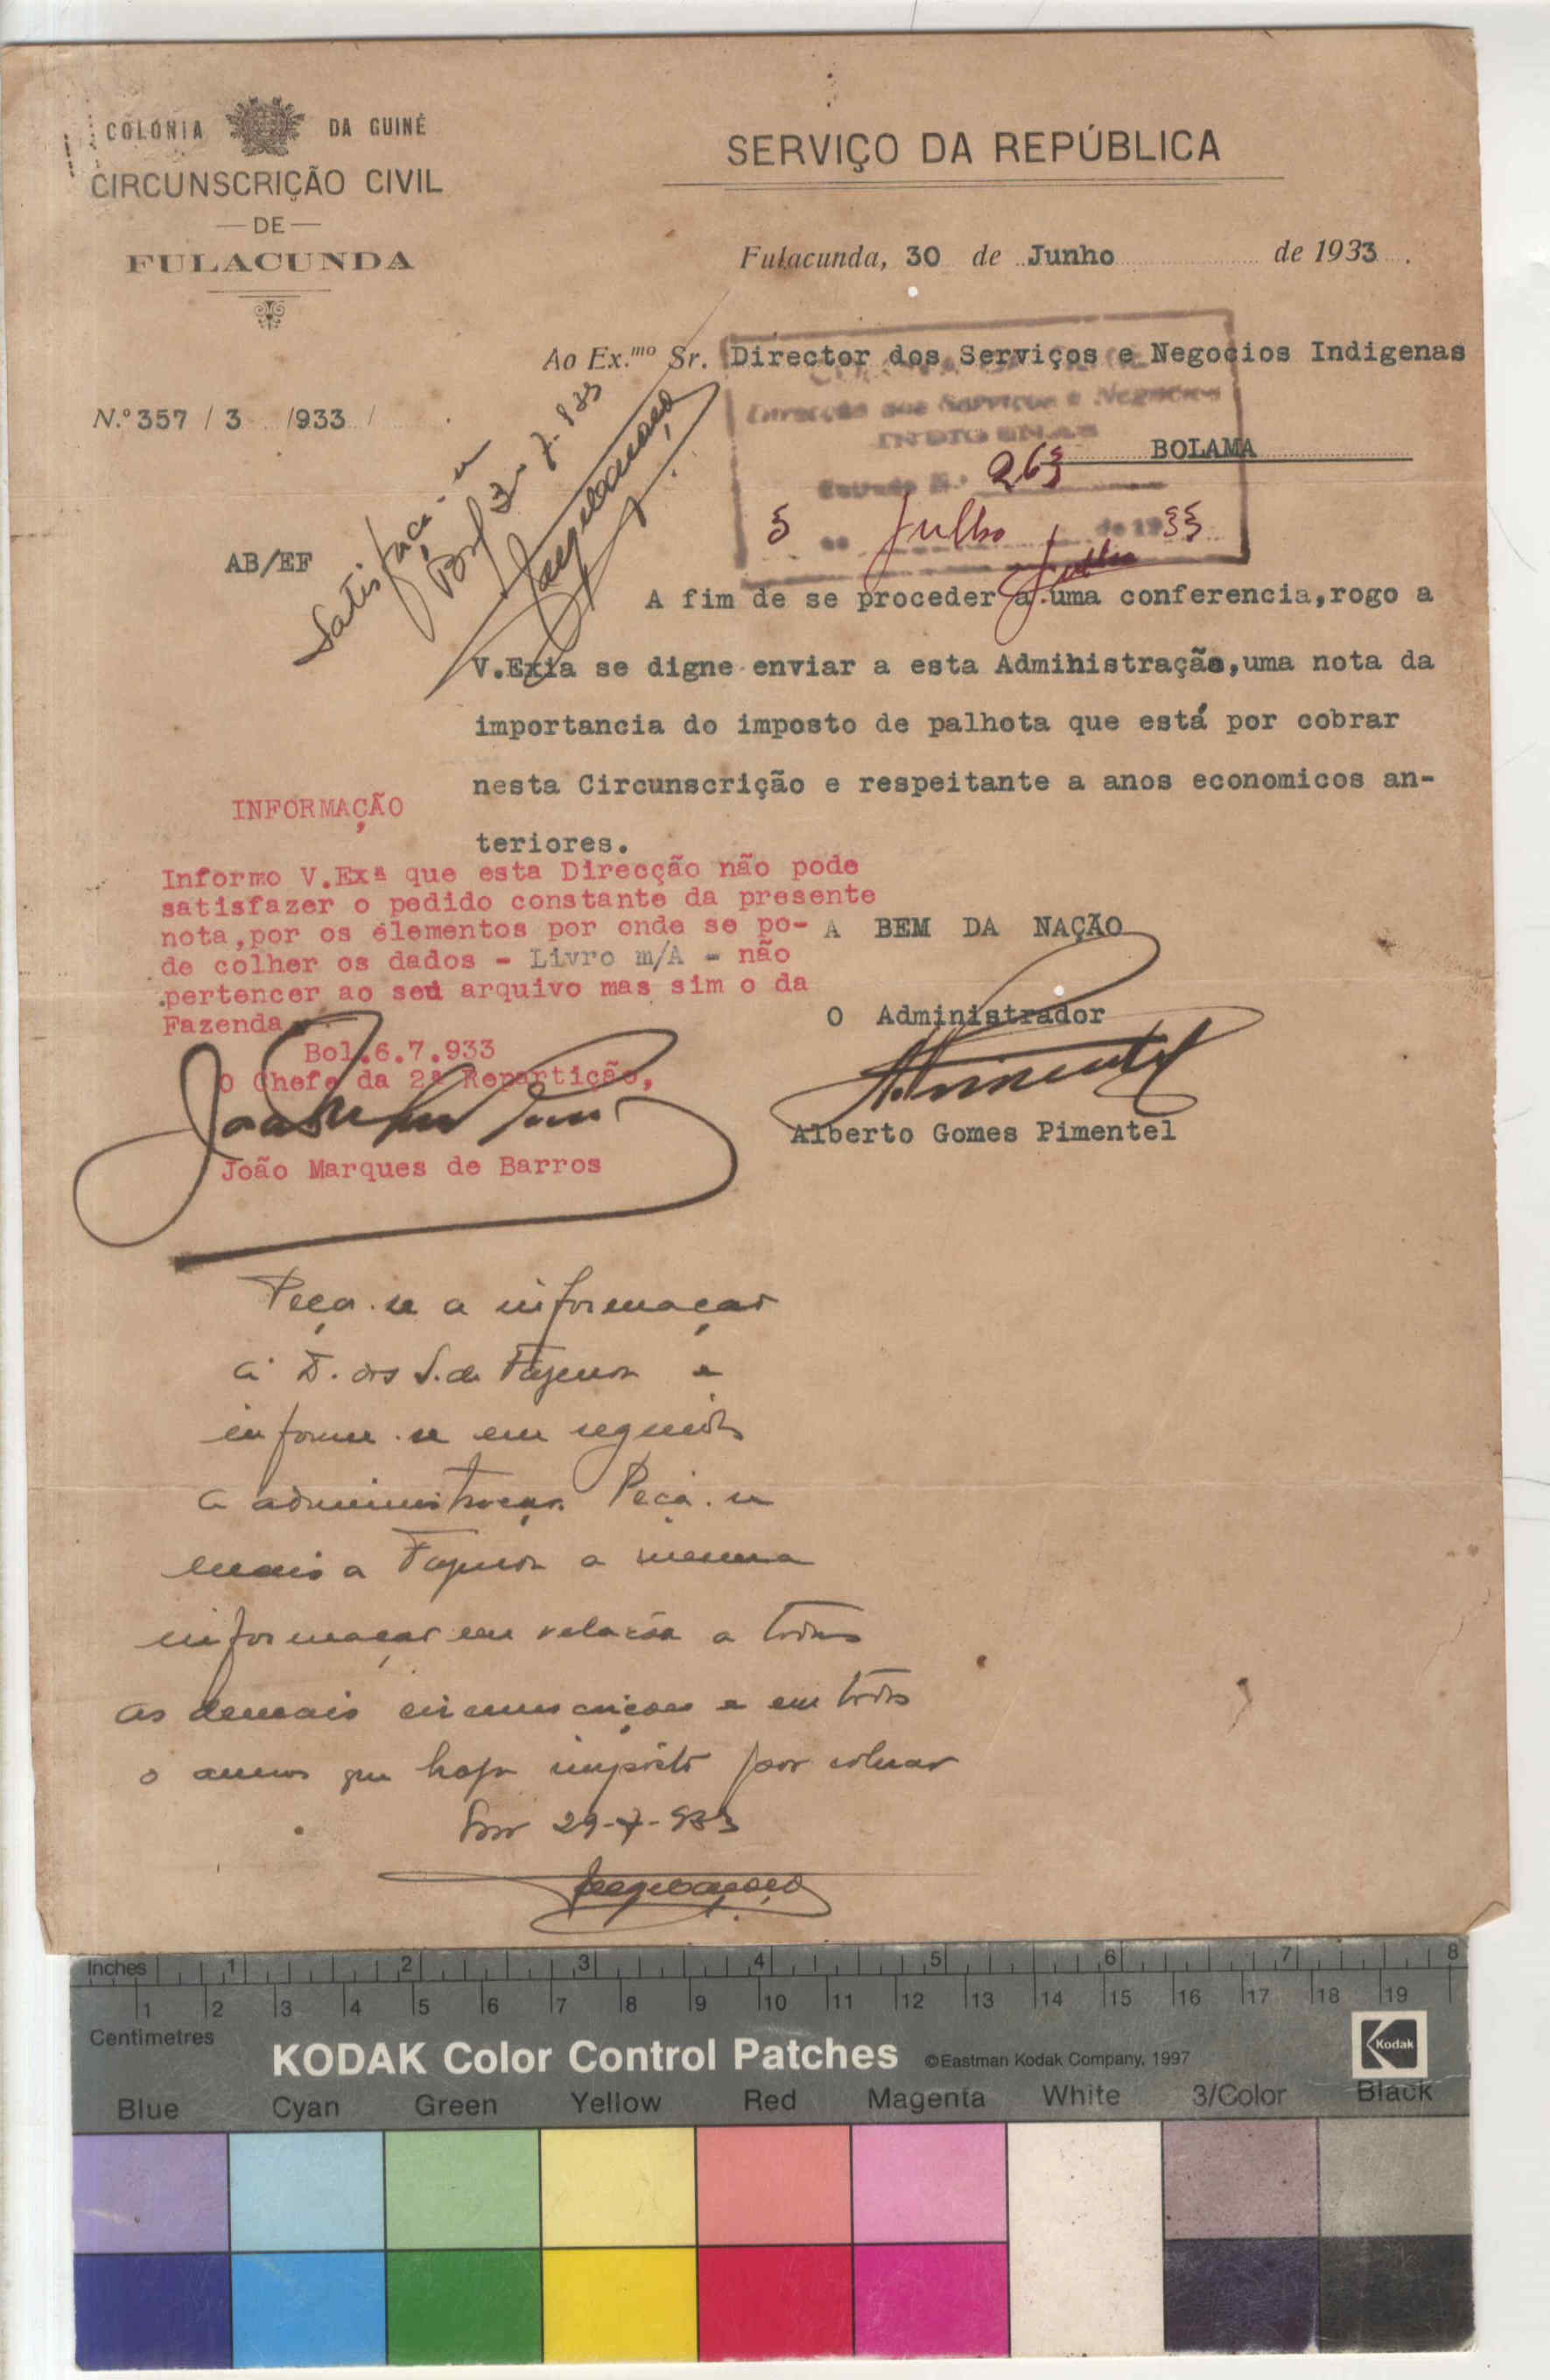 COLÓNIA DA GUINÉ
CIRCUNSCRIÇÃO CIVIL
—DE—
FULACUNDA
SERVIÇO DA REPÚBLICA
Fulacunda, 30 de Junho de 1933.
Ao Ex.mo Sr. Director dos Serviços e Negocios Indigenas
N.º 357 / 3 /933 /
BOLAMA
Direcção dos Serviços e Negocios
INDIGENAS
Entrada N.º 263
5 de Julho de 1933
Julho
Satisfaça-se
Bol 3-7-933
AB/EF
A fim de se proceder a uma conferencia,rogo a
V.Exia se digne enviar a esta Administração,uma nota da
importancia do imposto de palhota que está por cobrar
nesta Circunscrição e respeitante a anos economicos an-
teriores.
A BEM DA NAÇÃO
O Administrador
Alberto Gomes Pimentel
INFORMAÇÃO
Informo V.Exª que esta Direcção não pode
satisfazer o pedido constante da presente
nota,por os elementos por onde se po-
de colher os dados - Livro m/A - não
pertencer ao seu arquivo mas sim o da
Fazenda.
Bol.6.7.933
O Chefe da 2ª Repartição,
João Marques de Barros
Peça-se a informação
á D. dos S. de Fazenda e
informe-se em seguida
a administração. Peça-se
mais a Fazenda a mesma
informação em relação a todas
as demais circunscrições e em todos
o annos que haja imposto por cobrar
29-7-933
Inches 1 2 3 4 5 6 7 8
1 2 3 4 5 6 7 8 9 10 11 12 13 14 15 16 17 18 19
Centimetres
KODAK Color Control Patches ©Eastman Kodak Company, 1997 Kodak
Blue Cyan Green Yellow Red Magenta White 3/Color Black